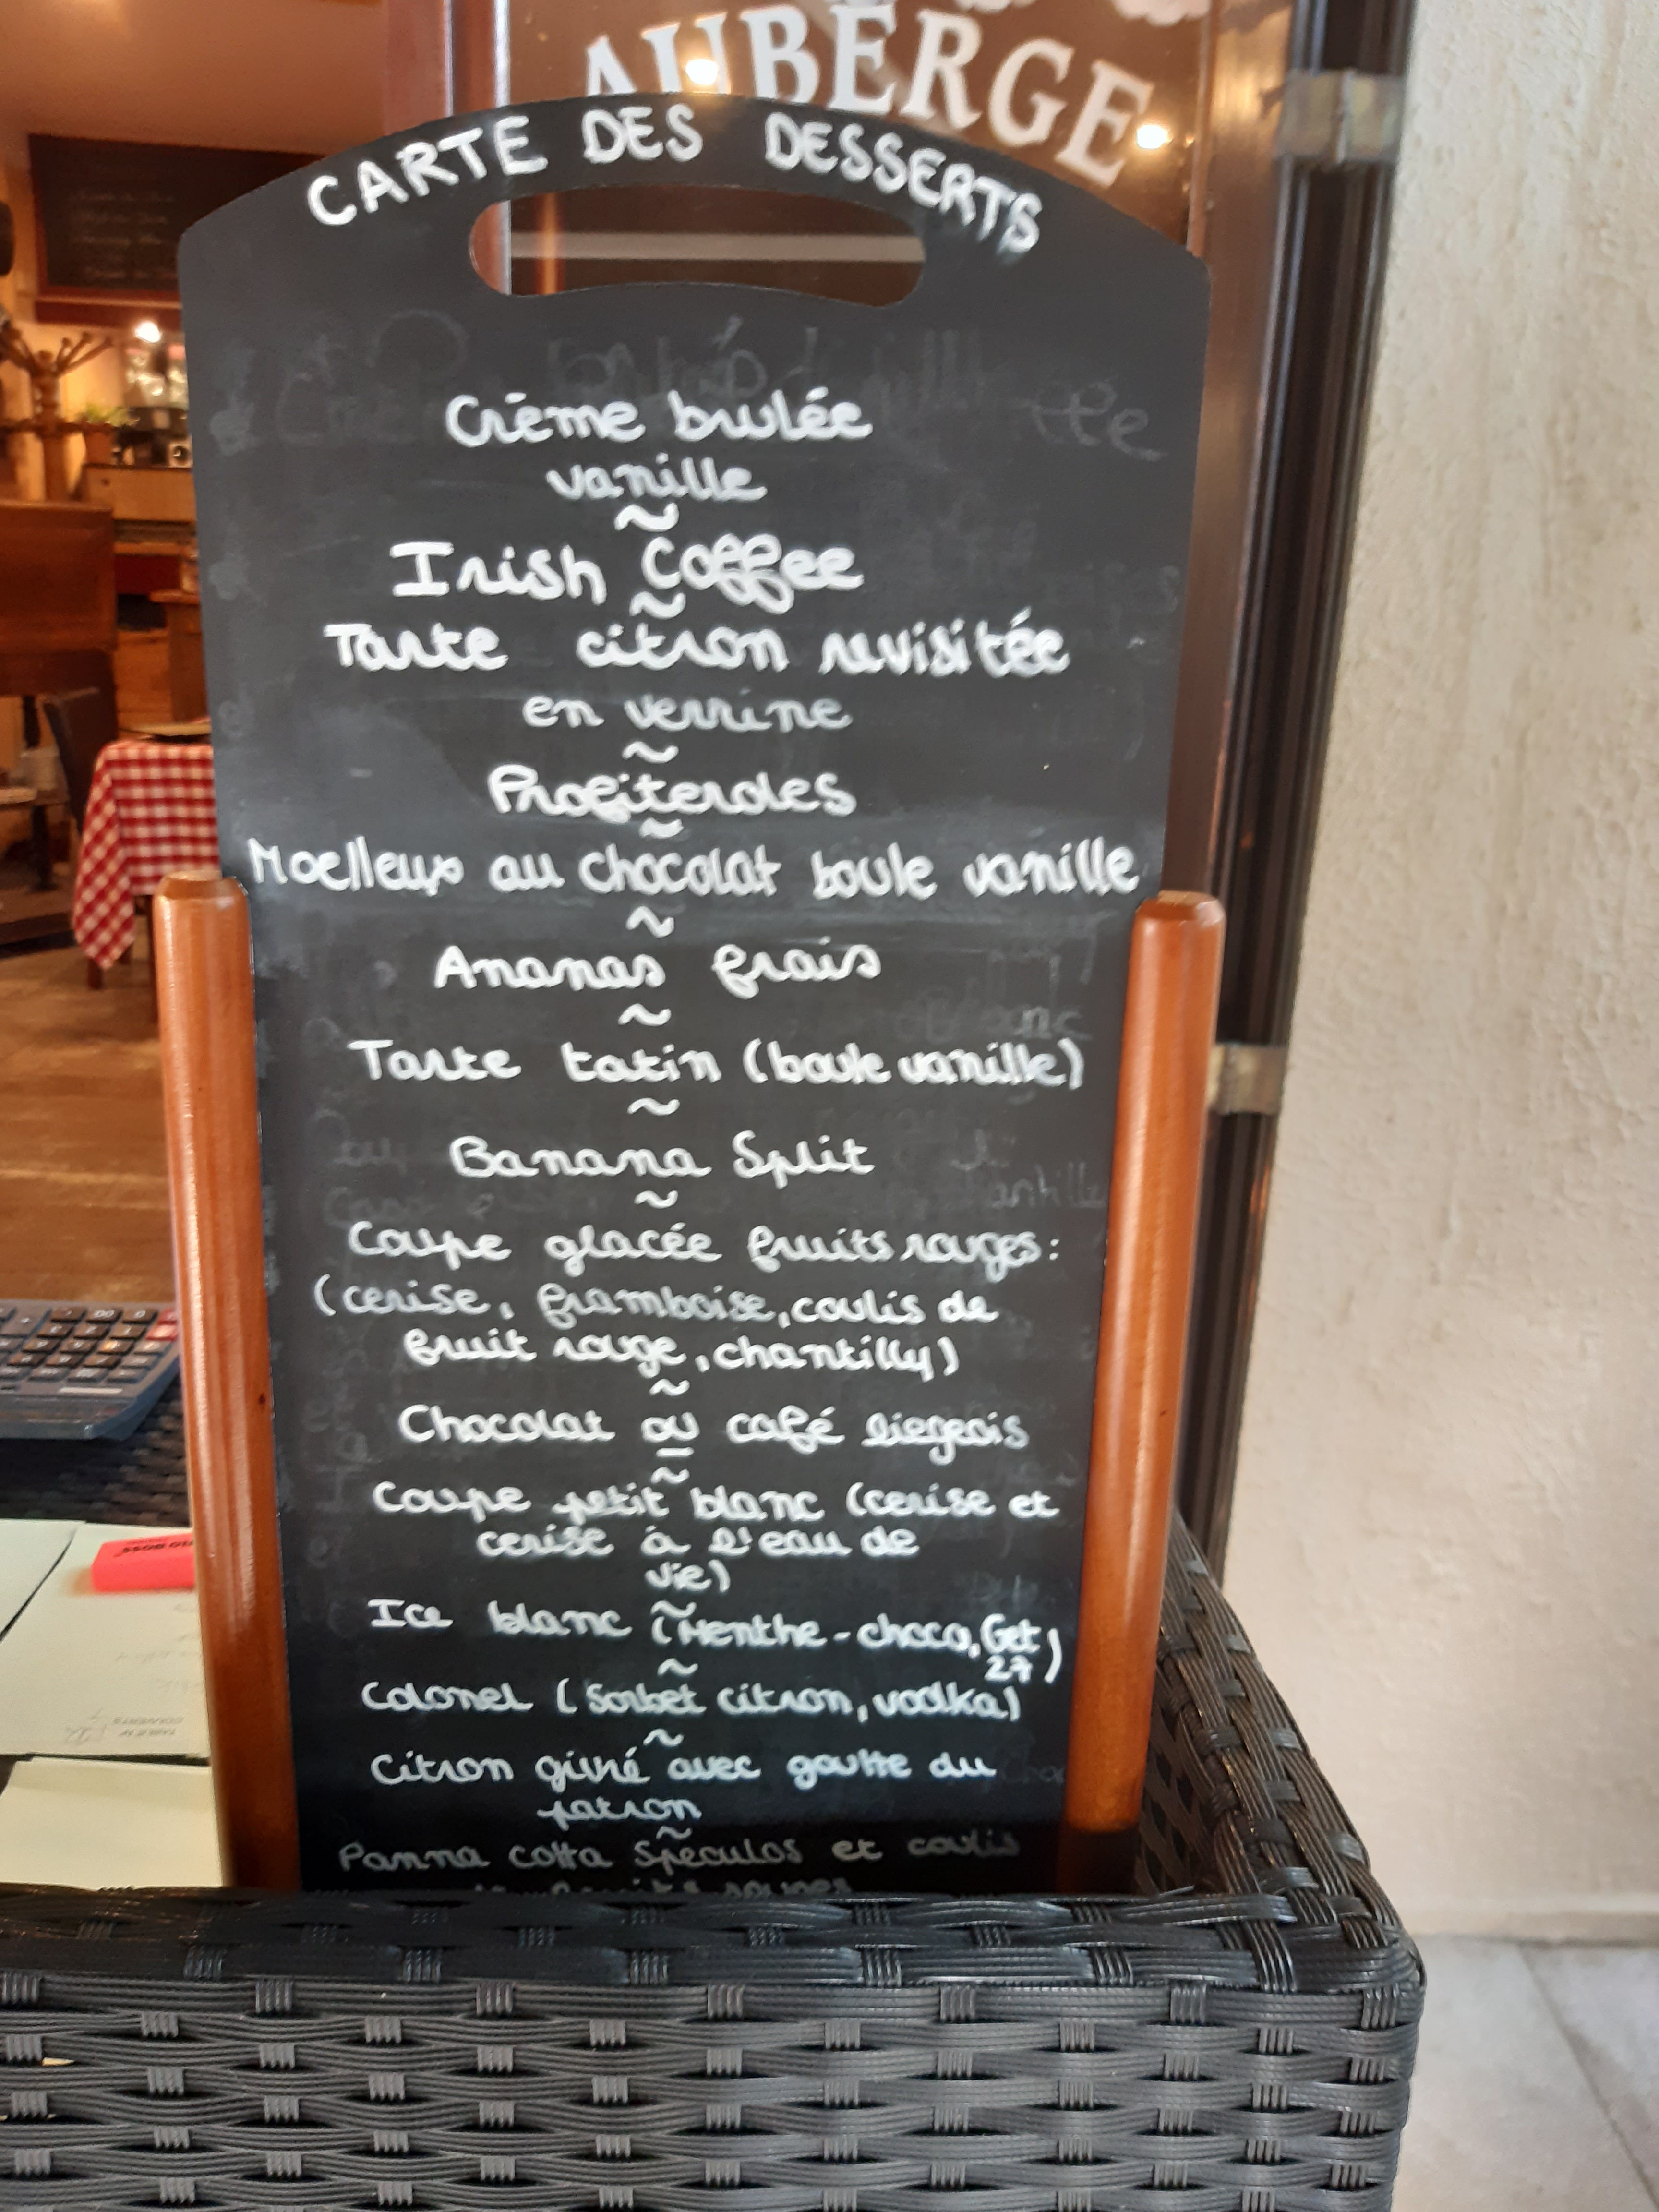 AUBERGE
CARTE DES DESSERTS
Crème brulée
vanille
~
Irish Coffee
~
Tarte citron revisitée
en verrine
~
Profiteroles
~
Moelleux au chocolat boule vanille
~
Ananas frais
~
Tarte tatin (boule vanille)
~
Banana Split
~
Coupe glacée fruits rouges:
(cerise, framboise, coulis de
fruit rouge, chantilly)
~
Chocolat ou café liegeois
~
Coupe petit blanc (cerise et
cerise à l'eau de
vie)
~
Ice blanc (Menthe-choco, Get
27)
~
Colonel (Sorbet citron, vodka)
~
Citron givré avec goutte du
patron
~
Panna cotta Speculos et coulis
rouges
BOSS